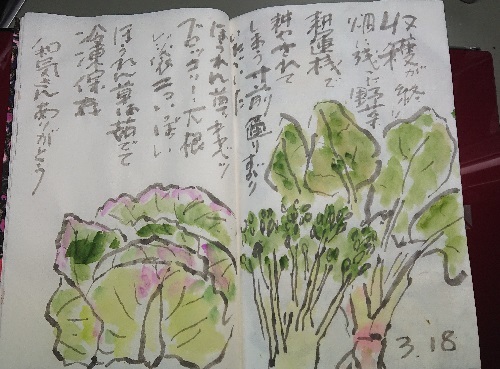 収穫が終り
畑に残た野菜
耕運機で
耕やされて
しまう寸前
ほうれん草キャベツ
ブロッコリー大根
いっぱい
ほうれん草は茹でて
冷凍保存
和気さんありがとう
3.18